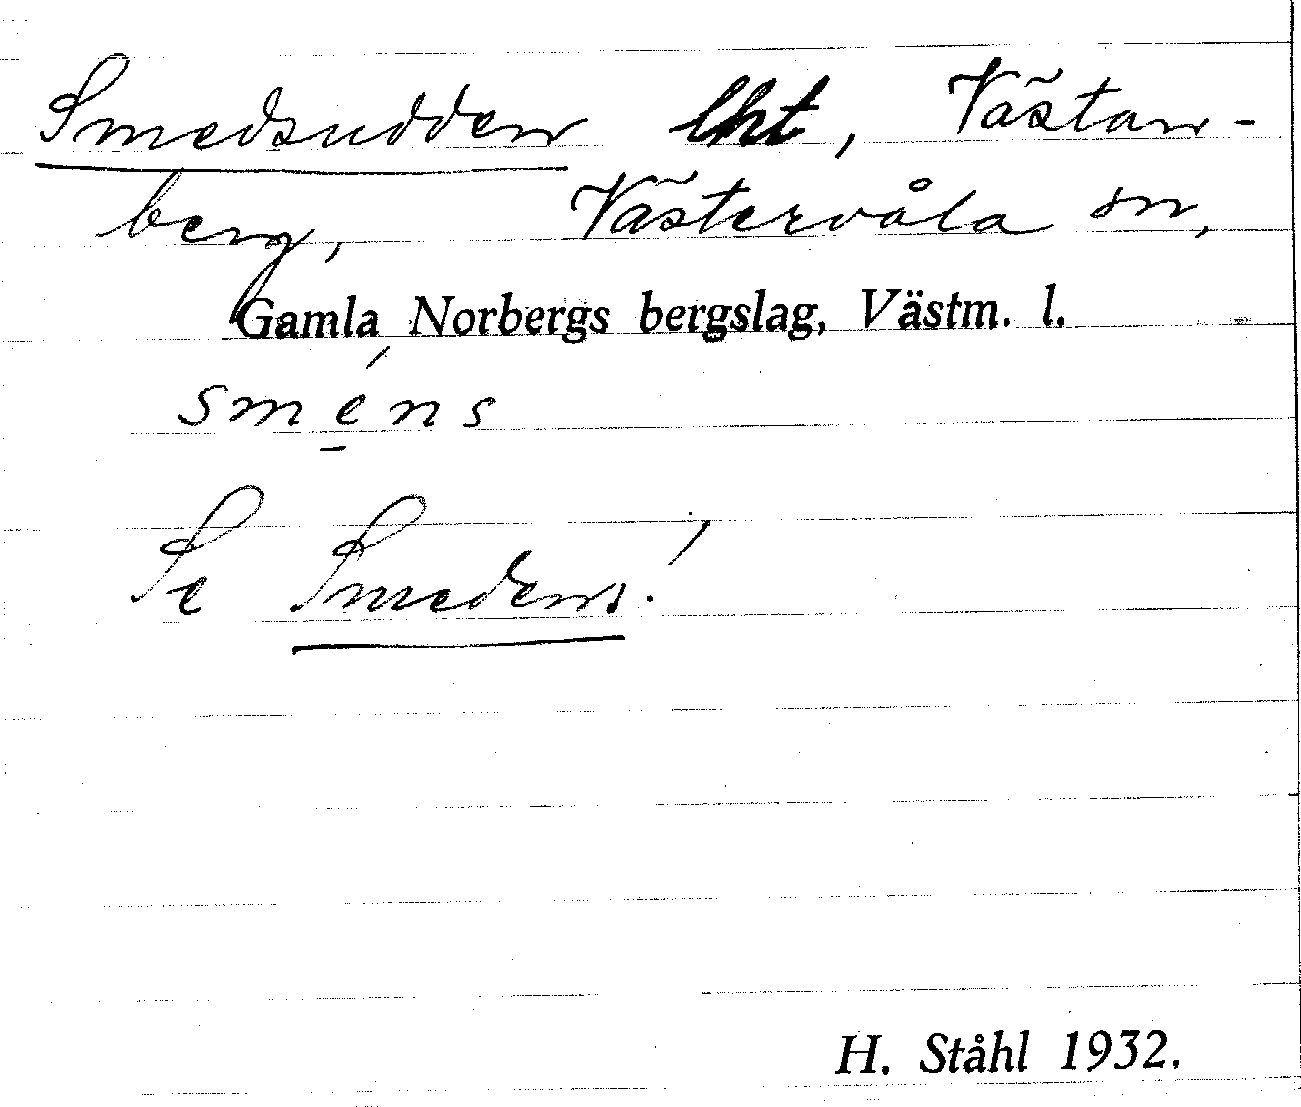 Smedsudden lht, Västan-
berg, Västervåla sn,
Gamla Norbergs bergslag, Västm. l.
sme̱´ns
Se Smedens!
H. Ståhl 1932.